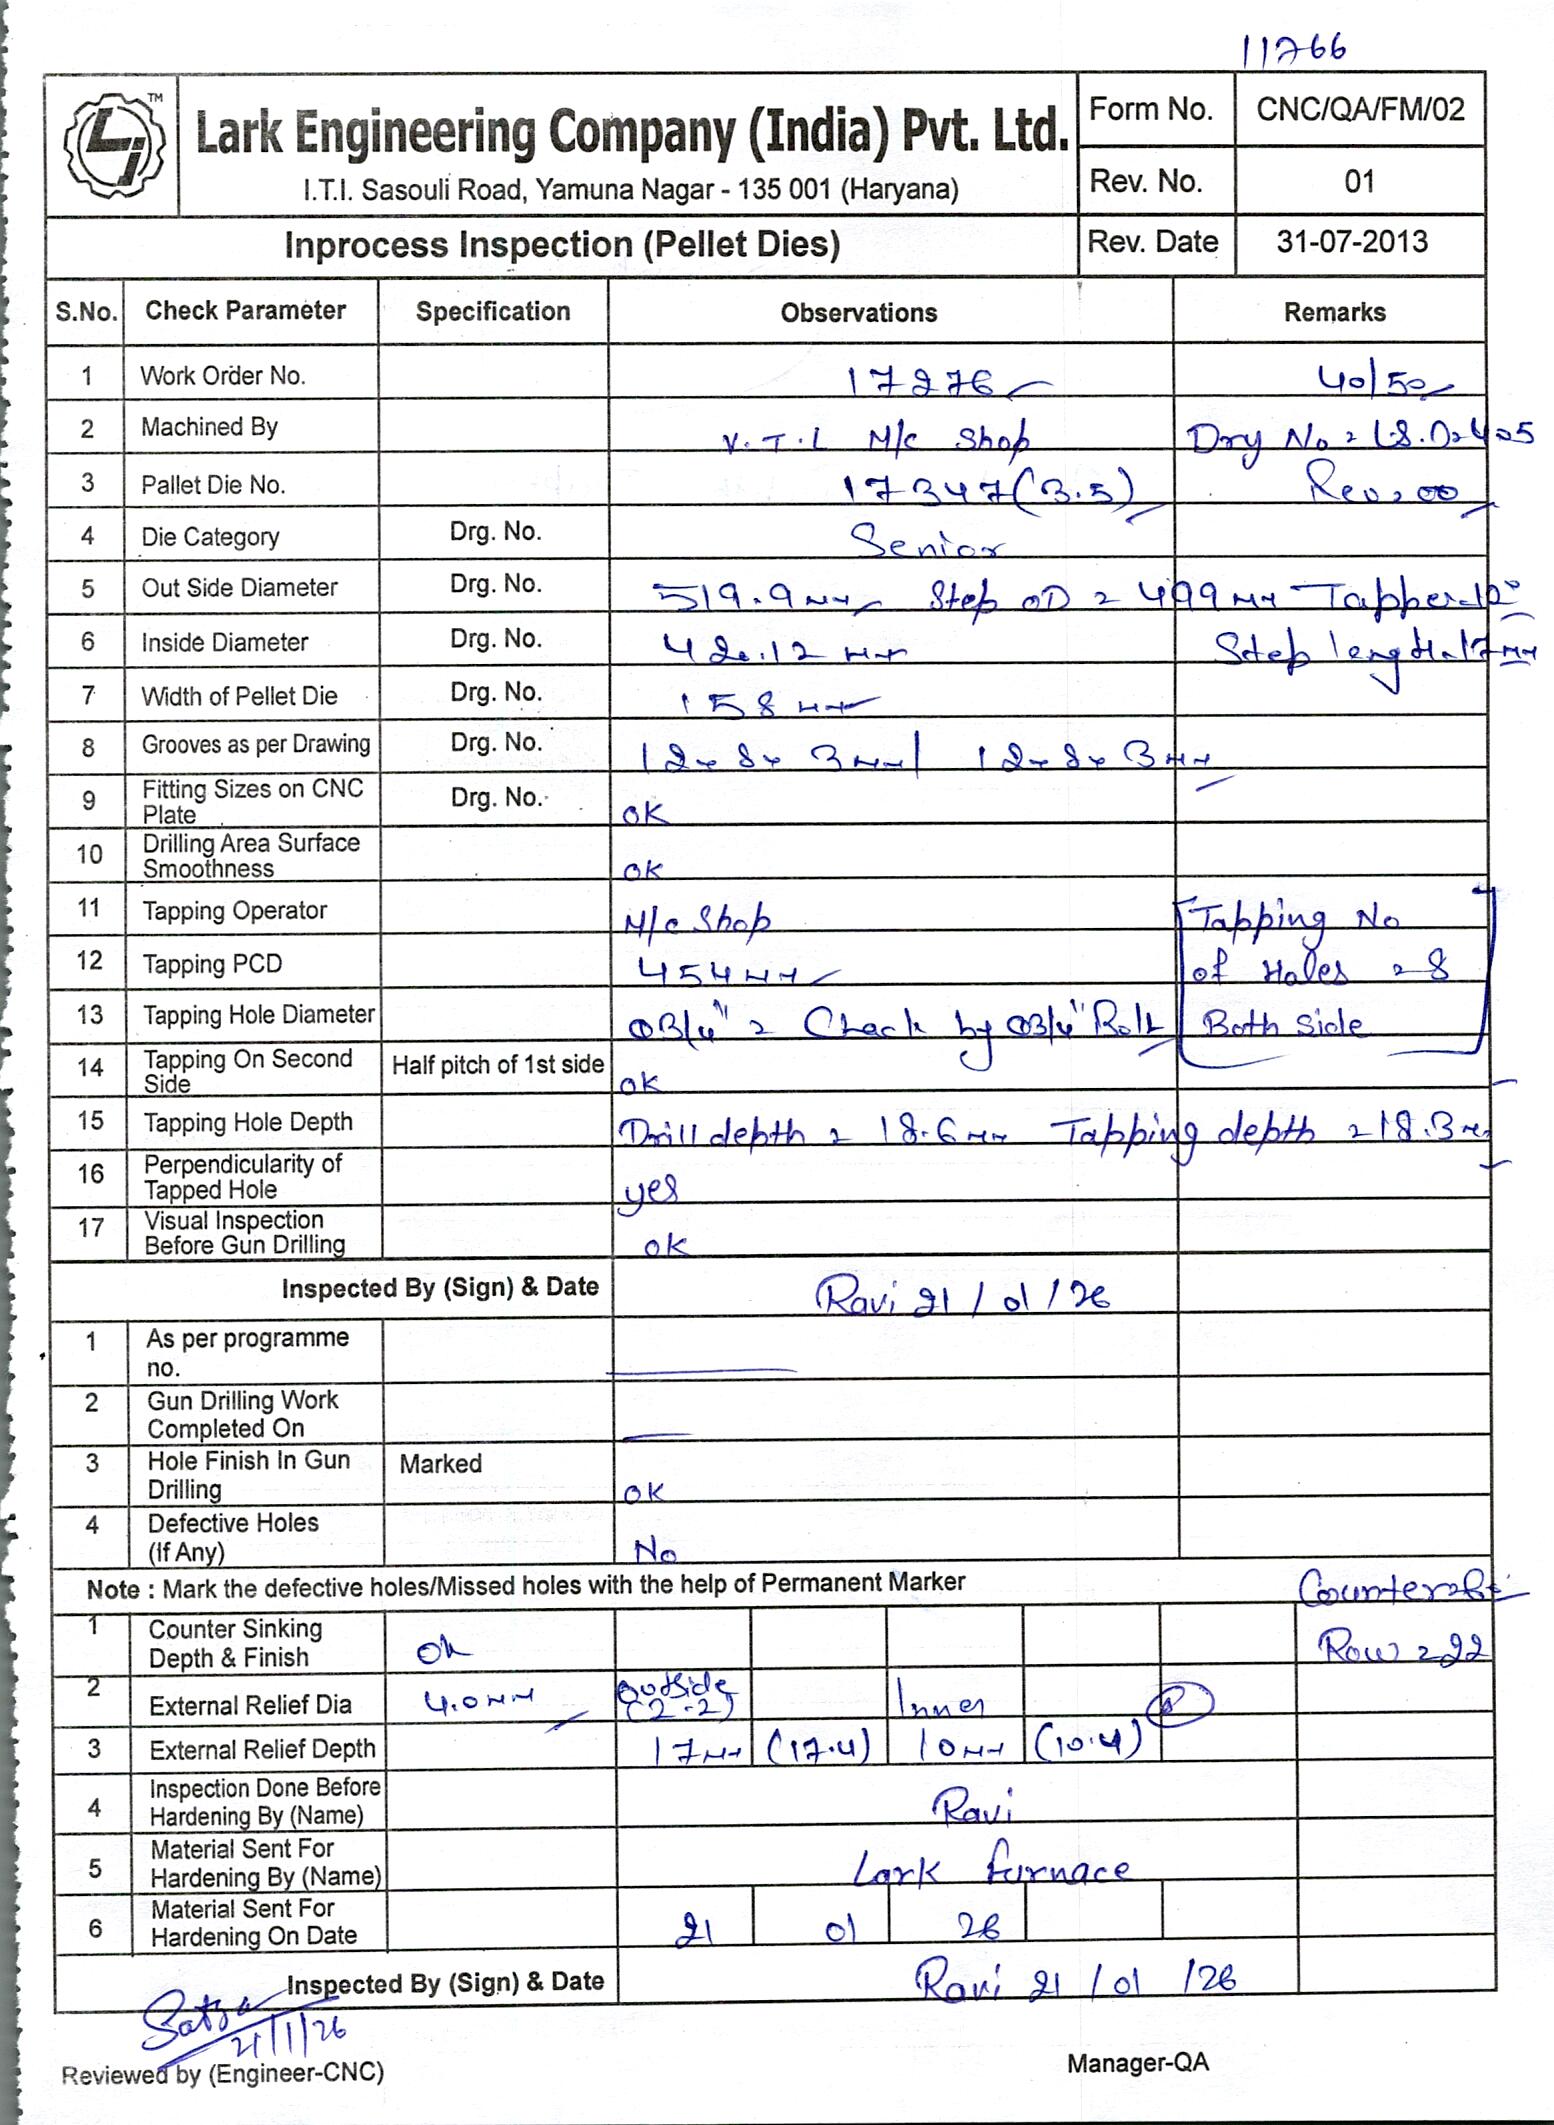 11766
Lark Engineering Company (India) Pvt. Ltd.
I.T.I. Sasouli Road, Yamuna Nagar - 135 001 (Haryana)
Form No. CNC/QA/FM/02
Rev. No. 01
Inprocess Inspection (Pellet Dies)
Rev. Date 31-07-2013
S.No. Check Parameter Specification Observations Remarks
1 Work Order No. 17276 40/50
2 Machined By V.T.L M/c Shop Drg No =
3 Pallet Die No. 17347(3.5) Rev = 00
4 Die Category Drg. No. Senior
5 Out Side Diameter Drg. No. 519.9mm Step OD = 499mm Tapper
6 Inside Diameter Drg. No. 420.12 mm Step length 17mm
7 Width of Pellet Die Drg. No. 158 mm
8 Grooves as per Drawing Drg. No. 12x8x3mm/ 12x8x3mm
9 Fitting Sizes on CNC Plate Drg. No. OK
10 Drilling Area Surface Smoothness OK
11 Tapping Operator M/c Shop Tapping No
12 Tapping PCD 454mm of Holes = 8
13 Tapping Hole Diameter Ø3/4" = Check by Ø3/4" Bolt Both Side
14 Tapping On Second Side Half pitch of 1st side OK
15 Tapping Hole Depth Drill depth = 18.6mm Tapping depth = 18.3mm
16 Perpendicularity of Tapped Hole yes
17 Visual Inspection Before Gun Drilling OK
Inspected By (Sign) & Date Ravi 21/01/26
1 As per programme no.
2 Gun Drilling Work Completed On
3 Hole Finish In Gun Drilling Marked OK
4 Defective Holes (If Any) No
Note : Mark the defective holes/Missed holes with the help of Permanent Marker
1 Counter Sinking Depth & Finish Ok Row = 22
2 External Relief Dia 4.0mm Outside (2-2) Inner
3 External Relief Depth 17mm (17.4) 10mm (10.4)
4 Inspection Done Before Hardening By (Name) Ravi
5 Material Sent For Hardening By (Name) Lark furnace
6 Material Sent For Hardening On Date 21 01 26
Inspected By (Sign) & Date Ravi 21/01/26
21/1/26
Reviewed by (Engineer-CNC) Manager-QA